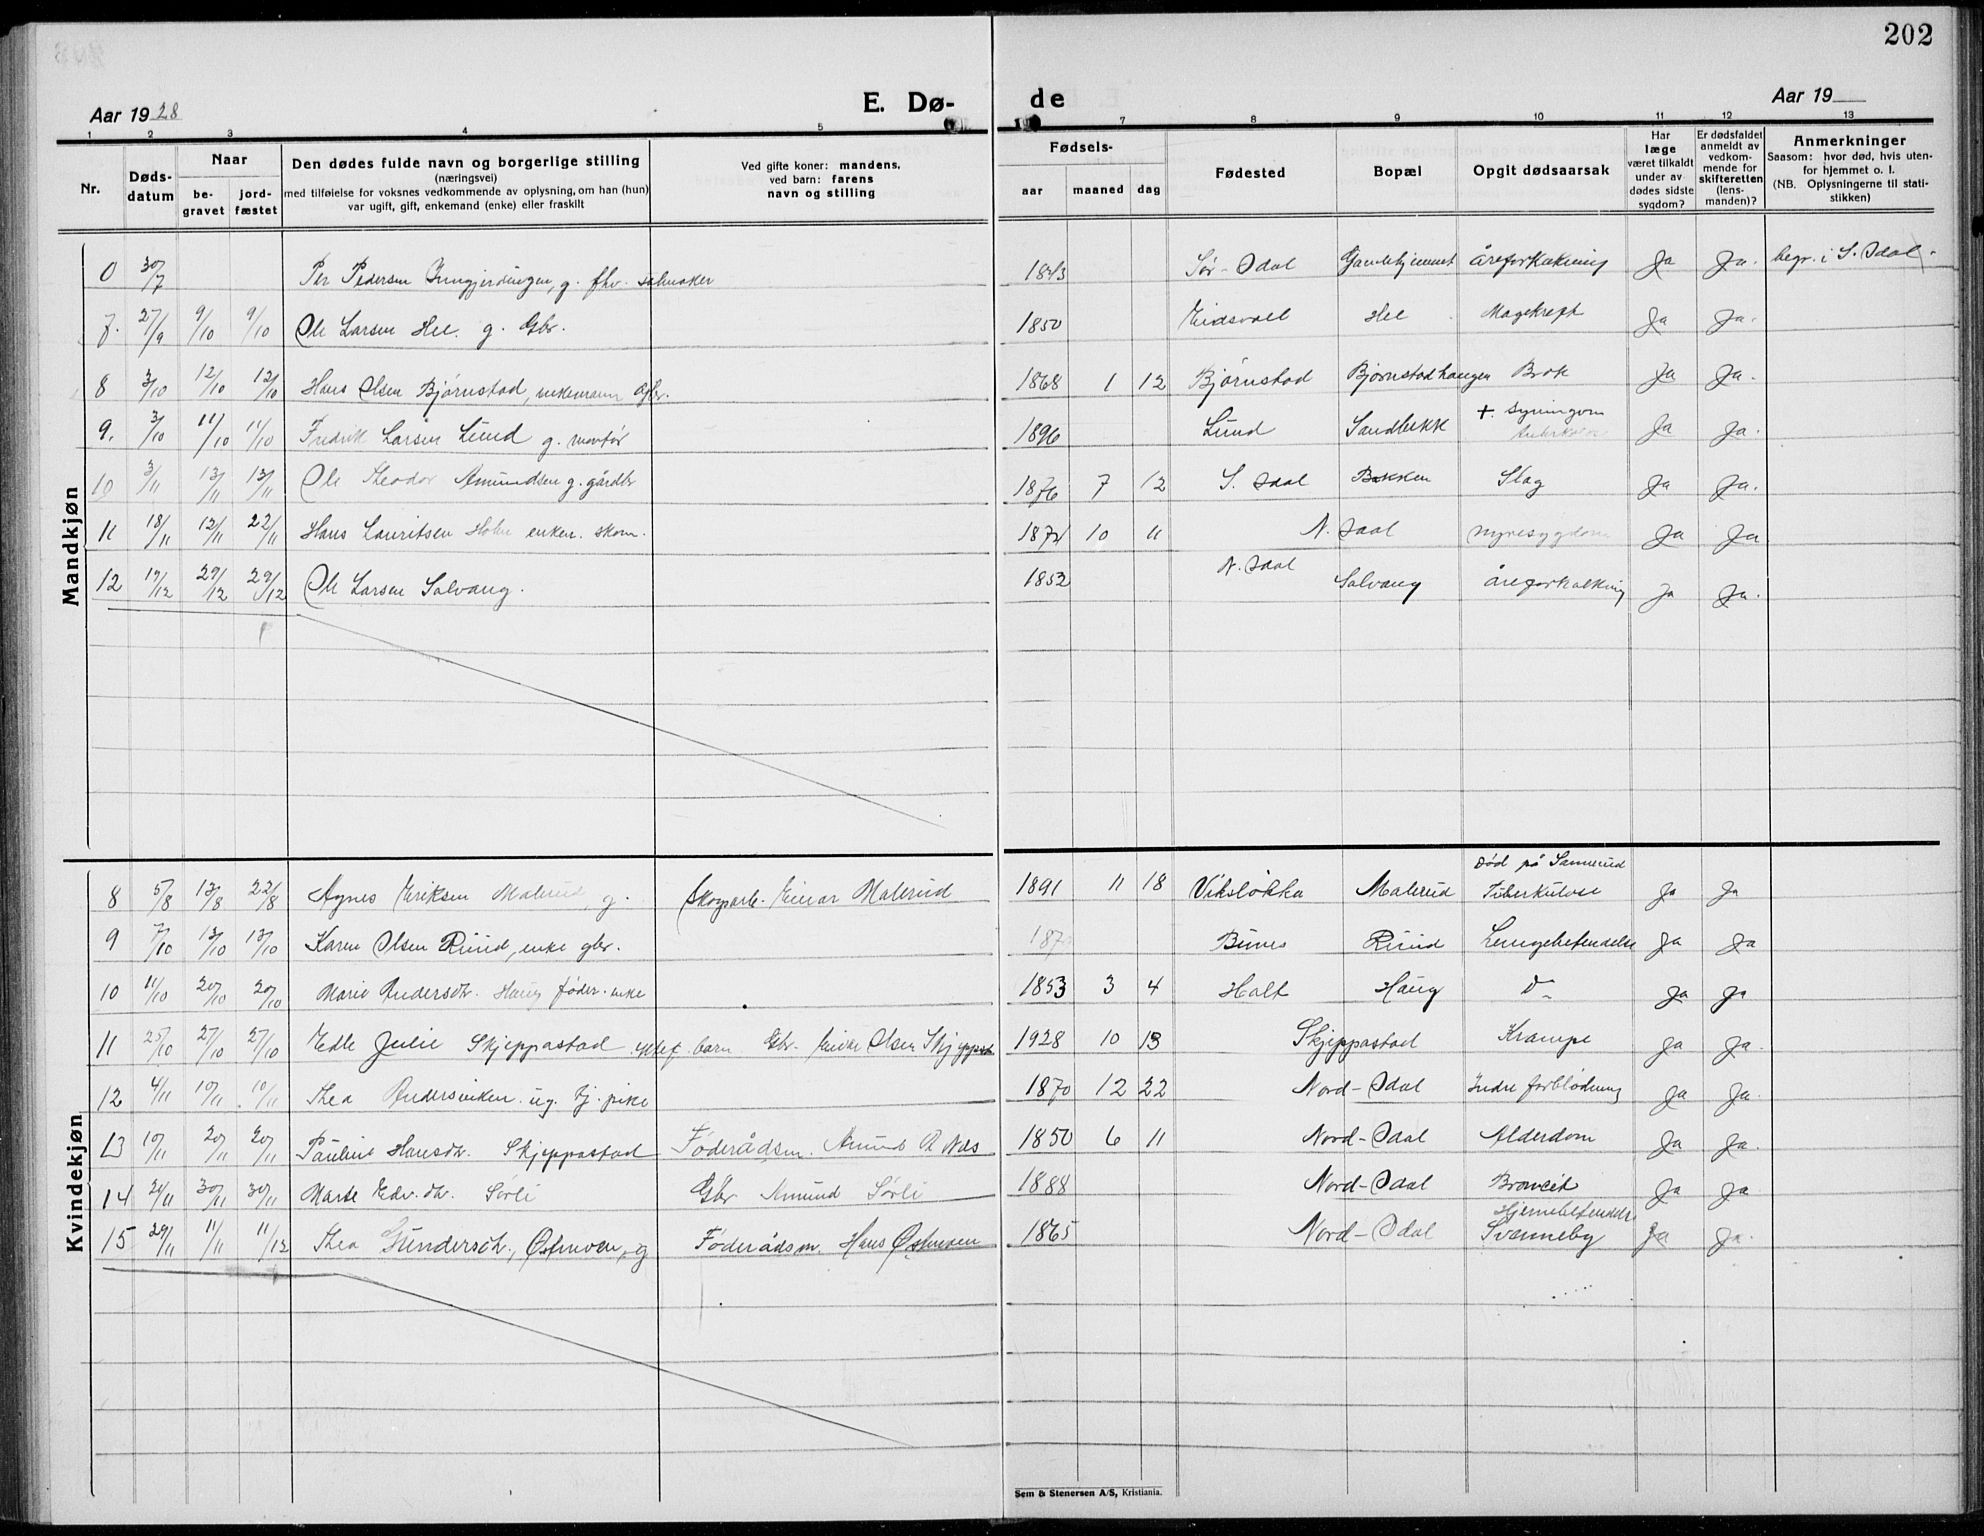 202
Aar 1928 E. Dø- de Aar 19
1 2 3 4 5 7 8 9 10 11 12 13
Nr. Døds-datum Naar be-gravet jord-fæstet Den dødes fulde navn og borgerlige stilling (næringsvei) med tilføielse for voksnes vedkommende av oplysning, om han (hun) var ugift, gift, enkemand (enke) eller fraskilt Ved gifte koner: mandens, ved barn: farens navn og stilling Fødsels- aar maaned dag Fødested Bopæl Opgit dødsaarsak Har læge været tilkaldt under av-dødes sidste sygdom? Er dødsfaldet anmeldt av vedkom-mende for skifteretten (lens-manden)? Anmerkninger Saasom: hvor død, hvis uten-for hjemmet o. l. (NB. Oplysningerne til stati-stikken)
Mandkjøn
0 30/7 Per Pedersen g. fhv. 1843 Sør-Odal Gamlehjemmet åreforkalkning Ja Ja. begr. i S. Odal.
7. 27/9 9/10 9/10 Ole Larsen Hee. g. Gbr. 1850 Eidsvoll Hee Magekreft Ja Ja.
8 3/10 12/10 12/10 Hans Olsen Bjørnstad, enkemann Gbr. 1868 1 12 Bjørnstad Bjørnstadhaugen Brok Ja Ja.
9. 3/10 11/10 11/10 Fredrik Larsen Lund g. 1896 Lund Sandbekk Ja Ja.
10 3/11 13/11 13/11 Ole Teodor Amundsen g. gårdbr 1876 7 12 S. Odal Bakken Slag Ja Ja.
11 18/11 12/11 22/11 Hans Lauritsen enkem. skom. 1874 10 11 N. Odal nyresygdom Ja Ja
12 19/12 29/12 29/12 Ole Larsen Solvang. 1852 N. Odal Solvang åreforkalkning Ja Ja.
Kvindekjøn
8 5/8 13/8 22/8 Agnes Eriksen Malerud, g. Skogsarb. Einar Malerud 1891 11 18 Viksløkka Malerud Død på Sannerud Tuberkulose Ja Ja
9 7/10 13/10 13/10 Karen Olsen Ruud, enke gbr. Bunes Ruud Lungebetendelse Ja Ja
10 11/10 20/10 20/10 Marie Andersdtr. Haug føder. enke 1853 3 4 Holt Haug Do Ja Ja
11 25/10 27/10 27/10 Edle Julie Skjeppastad barn Gbr. Olsen Skjeppst. 1928 10 13 Skjeppastad Krampe Ja Ja.
12 4/11 10/11 10/11 Thea Andersviken. ug. tj. pike 1870 12 22 Nord-Odal Indre forblødning Ja Ja.
13 10/11 20/11 20/11 Pauline Hansdtr. Skjeppastad Føderådsm. Amund Næs 1850 6 11 Nord-Odal Alderdom Ja Ja.
14 24/11 30/11 30/11 Marte Edv. dtr. Sørli Gbr Amund Sørli 1888 Nord-Odal Broncit Ja Ja.
15 29/11 11/11 11/12 Thea Gundersdtr., g Føderådsm. Hans 1865 Nord-Odal Hjernebetendelse Svenneby Ja Ja.
Sem & Stenersen A/S, Kristiania.